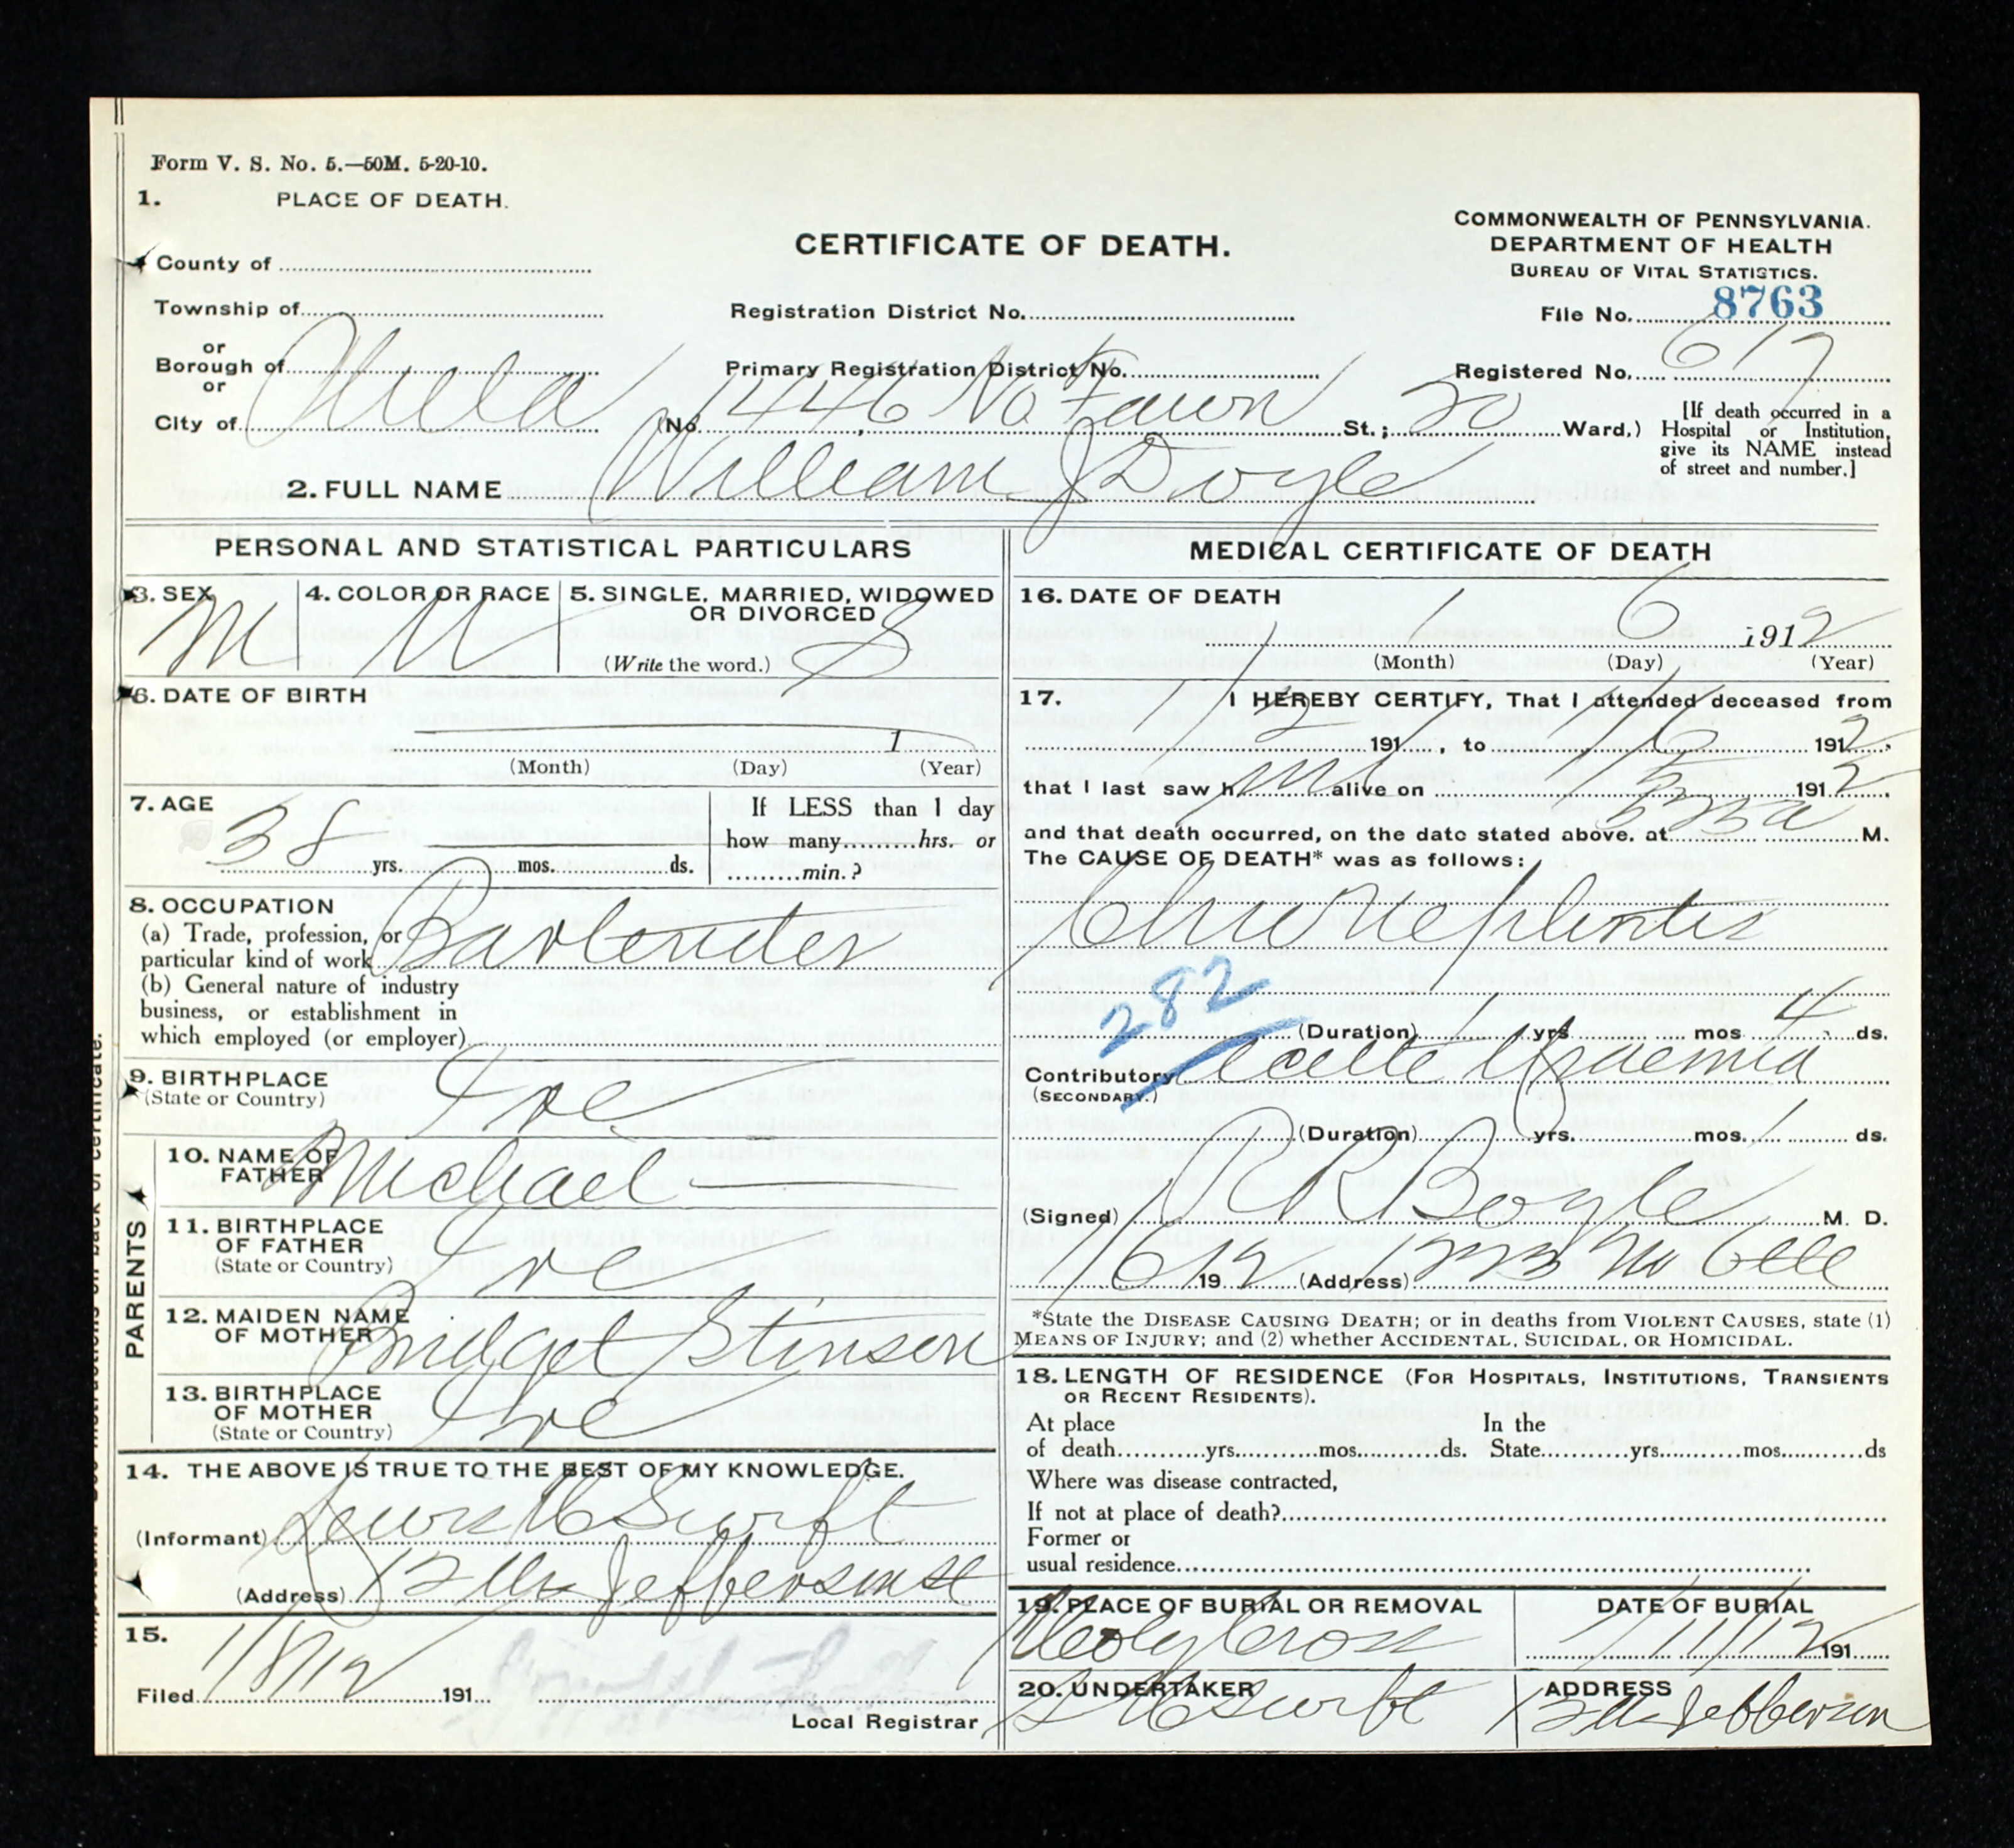 Form V. S. No. 5.—50M. 5-20-10.
1. PLACE OF DEATH.
County of
Township of
or
Borough of
or
City of Phila
CERTIFICATE OF DEATH.
Registration District No.
Primary Registration District No.
(No. 1446 No Fawn St.; 20 Ward,)
COMMONWEALTH OF PENNSYLVANIA.
DEPARTMENT OF HEALTH
BUREAU OF VITAL STATISTICS.
File No. 8763
Registered No. 617
[If death occurred in a
Hospital or Institution,
give its NAME instead
of street and number.]
2. FULL NAME William J Doyle
PERSONAL AND STATISTICAL PARTICULARS
3. SEX M
4. COLOR OR RACE W
5. SINGLE, MARRIED, WIDOWED
OR DIVORCED
(Write the word.) S
6. DATE OF BIRTH
1
(Month) (Day) (Year)
7. AGE
38 yrs. mos. ds.
If LESS than 1 day
how many hrs. or
min.?
8. OCCUPATION
(a) Trade, profession, or
particular kind of work Bartender
(b) General nature of industry
business, or establishment in
which employed (or employer)
9. BIRTHPLACE
(State or Country) Ire
PARENTS
10. NAME OF
FATHER Michael
11. BIRTHPLACE
OF FATHER
(State or Country) Ire
12. MAIDEN NAME
OF MOTHER Bridget Stinson
13. BIRTHPLACE
OF MOTHER
(State or Country) Ire
14. THE ABOVE IS TRUE TO THE BEST OF MY KNOWLEDGE.
(Informant) Swift
(Address) Jefferson st
15.
Filed 1/8/12 191
Local Registrar
MEDICAL CERTIFICATE OF DEATH
16. DATE OF DEATH
1 6 1912
(Month) (Day) (Year)
17. I HEREBY CERTIFY, That I attended deceased from
1/2 191 , to 1/6 1912.
that I last saw him alive on 1/5 1912.
and that death occurred, on the date stated above, at M.
The CAUSE OF DEATH* was as follows:
Chro Nephritis
282
(Duration) 1 yrs mos 4 ds.
Contributory Acute Uraemia
(SECONDARY.)
(Duration) yrs. mos. 1 ds.
(Signed) Boyle M. D.
1/6 1912 (Address)
*State the DISEASE CAUSING DEATH; or in deaths from VIOLENT CAUSES, state (1)
MEANS OF INJURY; and (2) whether ACCIDENTAL, SUICIDAL, OR HOMICIDAL.
18. LENGTH OF RESIDENCE (FOR HOSPITALS, INSTITUTIONS, TRANSIENTS
OR RECENT RESIDENTS).
At place In the
of death yrs. mos. ds. State yrs. mos. ds
Where was disease contracted,
If not at place of death?
Former or
usual residence
19. PLACE OF BURIAL OR REMOVAL
Holy Cross
DATE OF BURIAL
1/11/12 191
20. UNDERTAKER
Swift
ADDRESS
Jefferson